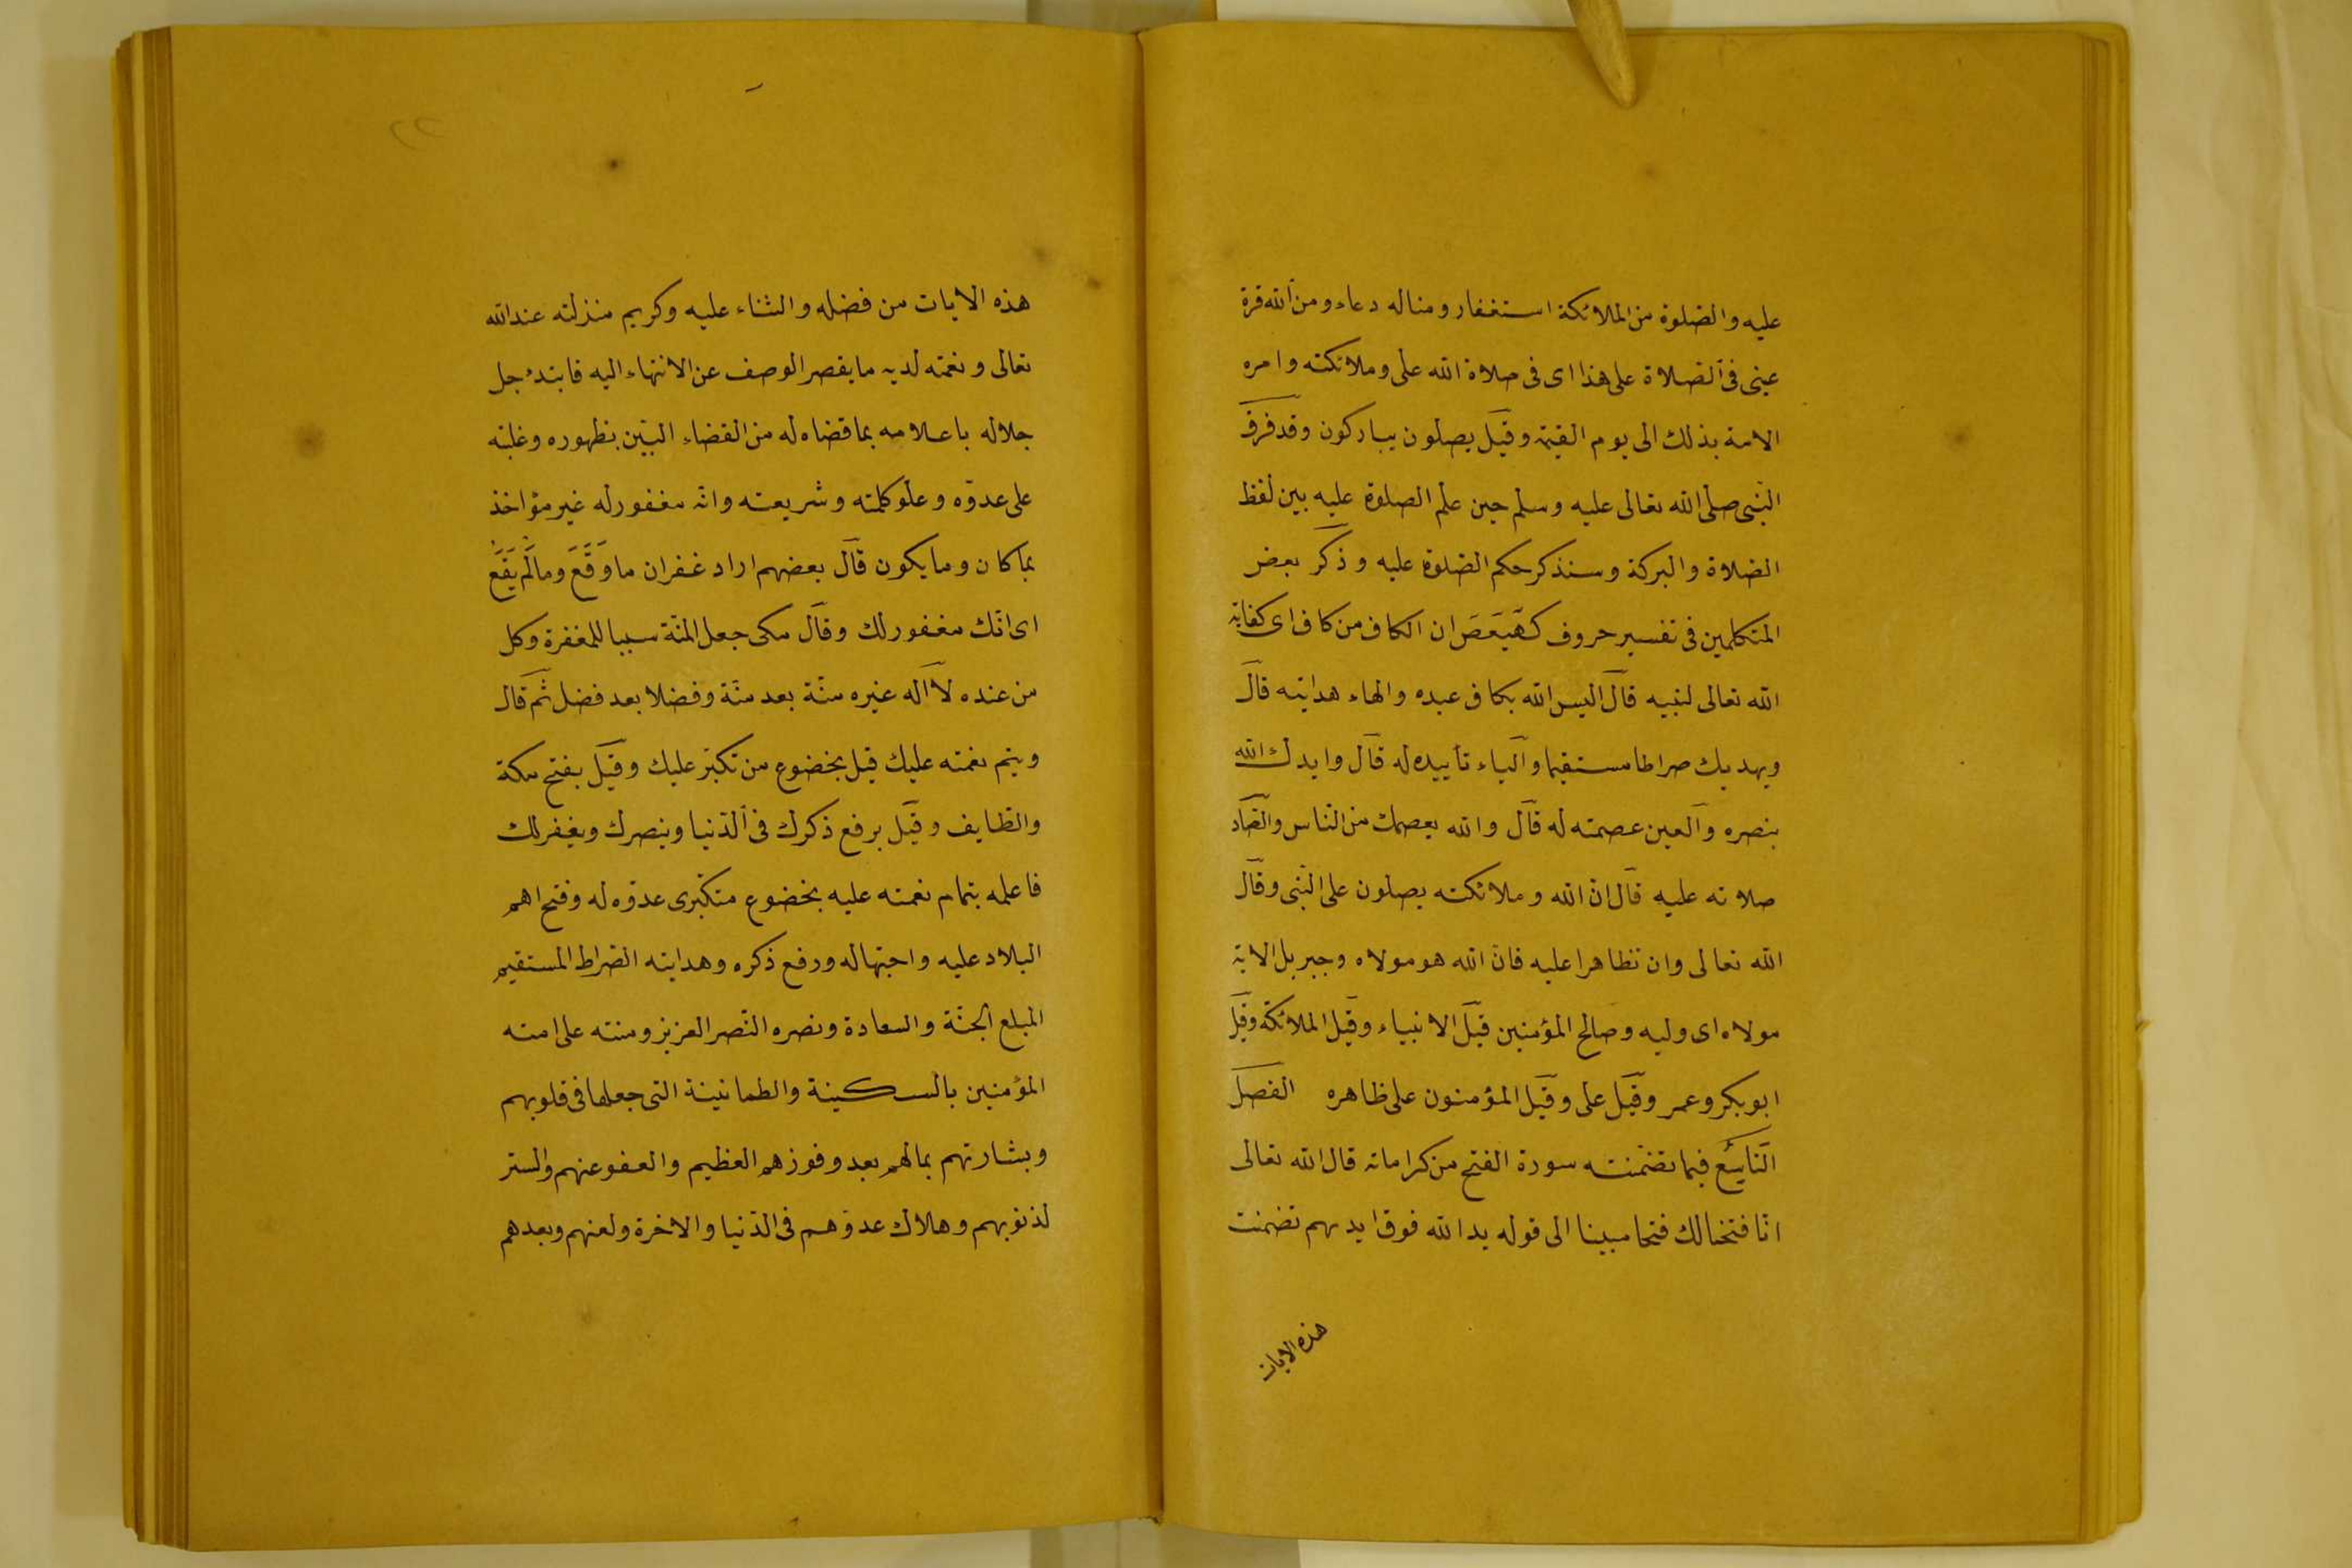 عليه والصلوة من الملائكة استغفار ومنا له دعاء ومن الله قرة
عينى فى الصلاة على هذا اى فى صلاة الله على وملائكته وامره
الامة بذلك الى يوم القيمة وقيل يصلون يباركون وقد فرق
النبى صلى الله تعالى عليه وسلم حين علم الصلوة عليه بين لفظ
الصلاة والبركة وسنذكر حكم الصلوة عليه وذكر بعض
المتكلمين فى تفسير حروف كهيعص ان الكاف من كاف اى كفاية
الله تعالى لنبيه قال اليس الله بكاف عبده والهاء هدايته قال
ويهديك صراطا مستقيما والياء تأييده له قال وايدك الله
بنصره والعين عصمته له قال والله يعصمك من الناس والصاد
صلاته عليه قال ان الله وملائكته يصلون على النبى وقال
الله تعالى وان تظاهرا عليه فان الله هو مولاه وجبريل الاية
مولاه اى وليه وصالح المؤمنين قيل الانبياء وقيل الملائكة وقيل
ابو بكر وعمر وقيل على وقيل المؤمنون على ظاهره الفصل
التاسع فيما تضمنته سورة الفتح من كراماته قال الله تعالى
انا فتحنا لك فتحا مبينا الى قوله يد الله فوق ايديهم تضمنت
هذه الايات
هذه الايات من فضله والثناء عليه وكريم منزلته عند الله
تعالى ونعمته لديه ما يقصر الوصف عن الانتهاء اليه فابتدء جل
جلاله باعلامه بما قضاه له من القضاء البيّن بظهوره وغلبته
على عدوّه وعلو كلمته وشريعته وانه مغفور له غير مؤاخذ
بما كان وما يكون قال بعضهم اراد غفران ما وَقَعَ وما لَم يَقَع
اى انّك مغفور لك وقال مكى جعل المنّة سببا للمغفرة وكل
من عنده لا اله غيره منّة بعد منّة وفضلا بعد فضل ثم قال
ويتم نعمته عليك قيل بخضوع من تكبّر عليك وقيل بفتح مكة
والطايف وقيل برفع ذكرك فى الدّنيا وينصرك ويغفر لك
فاعلمه بتمام نعمته عليه بخضوع متكبّرى عدوّه له وفتح اهم
البلاد عليه واحبها له ورفع ذكره وهدايته الصّراط المستقيم
المبلغ الجنّة والسعادة ونصره النّصر العزيز ومنته على امته
المؤمنين بالسكينة والطمانينة التى جعلها فى قلوبهم
وبشارتهم بما لهم بعد وفوزهم العظيم والعفو عنهم والستر
لذنوبهم وهلاك عدوّهم فى الدّنيا والاخرة ولعنهم وبعدهم